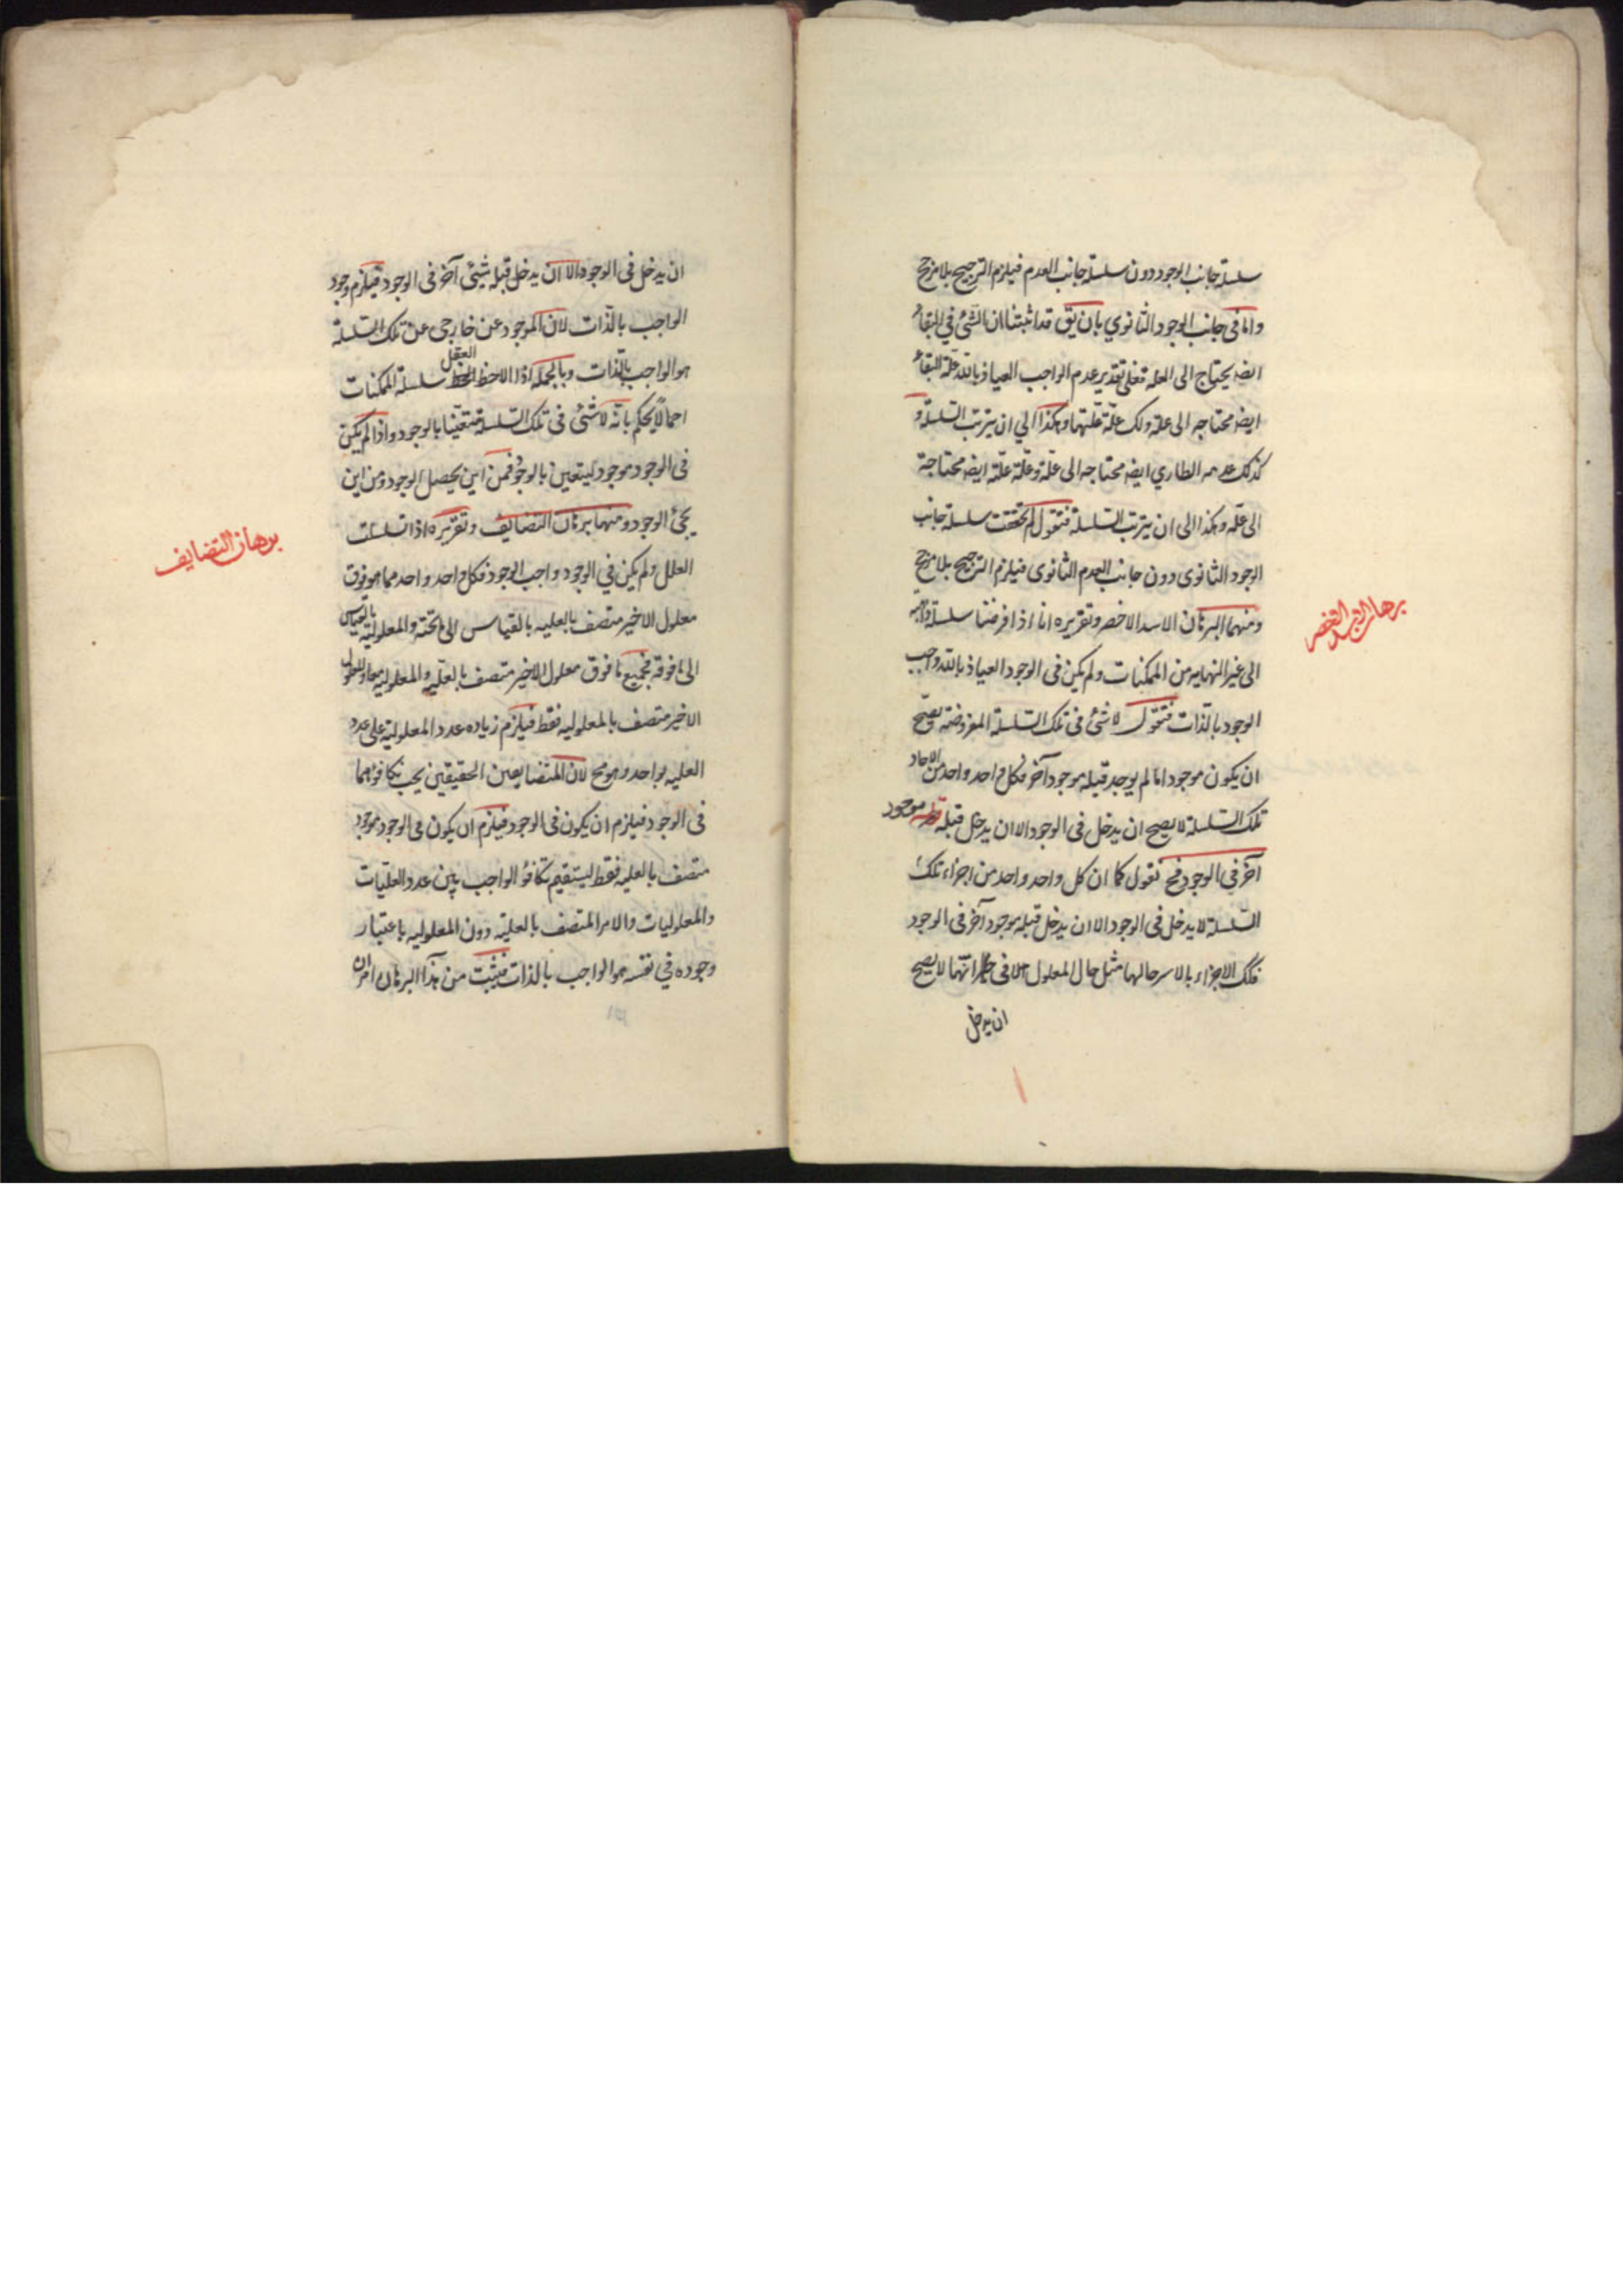 سلسلة جانب الوجود دون سلسلة جانب العدم فيلزم الترجيح بلا مرجح
واما فى جانب الوجود الثانوي بان يق قد اثبتنا ان الشئ في البقاء
ايضه يحتاج الى العله فعلى تقدير عدم الواجب العياذ بالله علة البقاء
ايضه محتاجه الى علة ولك علة علتها وهكذا الي ان يترتب السلسلة و
كذلك عدمه الطاري ايضه محتاجه الى علة وعلة علته ايضه محتاجة
الى علة وهكذا الى ان يترتب السلسلة فنقول لم تحققت سلسلة جانب
الوجود الثانوى دون جانب العدم الثانوى فيلزم الترجيح بلا مرجح
ومنهما البرهان الاسد الاخصر وتقريره انا اذا فرضنا سلسلة
برهان الاسد الاخصر
الى غير النهايه من الممكنات ولم يكن فى الوجود العياذ بالله واجب
الوجود بالذات فنقول لا شئ فى تلك السلسلة المفروضة يصح
ان يكون موجود اما لم يوجد قبله موجود آخر فكل واحد واحد من الاحاد
تلك السلسلة لا يصح ان يدخل فى الوجود الا ان يدخل قبله موجود
آخر فى الوجود فح نقول كما ان كل واحد واحد من اجزاء تلك
السلسلة لا يدخل فى الوجود الا ان يدخل قبله موجود آخر فى الوجود
فلك الاجزاء بالاسر حالها مثل حال المعلول فى انها لا يصح
ان يدخل
ان يدخل فى الوجود الا ان يدخل قبله شيئ آخر فى الوجود فيلزم وجود
الواجب بالذات لان الموجود عن خارجى عن تلك السلسلة
هو الواجب بالذات وبالجمله اذا لاحظ العقل سلسلة الممكنات
اجمالا يحكم بانه لا شئ فى تلك السلسلة متعينا بالوجود واذا لم يكن
فى الوجود موجود ليتعين بالوجود فمن اين يحصل الوجود ومن اين
يجئ الوجود ومنها برهان التضايف وتقريره اذا تسلسلت
برهان التضايف
العلل ولم يكن في الوجود واجب الوجود فكل واحد واحد مما هو فوق
معلول الاخير متصف بالعليه بالقياس الى ما تحته والمعلولية بالقياس
الى ما فوقه فجميع ما فوق معلول الاخير متصف بالعليه والمعلوليه معا والمعلول
الاخير متصف بالمعلوليه فقط فيلزم زياده عدد المعلولية على عدد
العليه بواحد وهو مح لان المتضايفين الحقيقين يجب تكافوهما
فى الوجود فيلزم ان يكون فى الوجود فيلزم ان يكون فى الوجود موجود
متصف بالعليه فقط ليستقيم تكافؤ الواجب بين عدد العليات
والمعلوليات والامر المتصف بالعلية دون المعلوليه باعتبار
وجوده في نفسه هو الواجب بالذات فيثبت من هذا البرهان امران